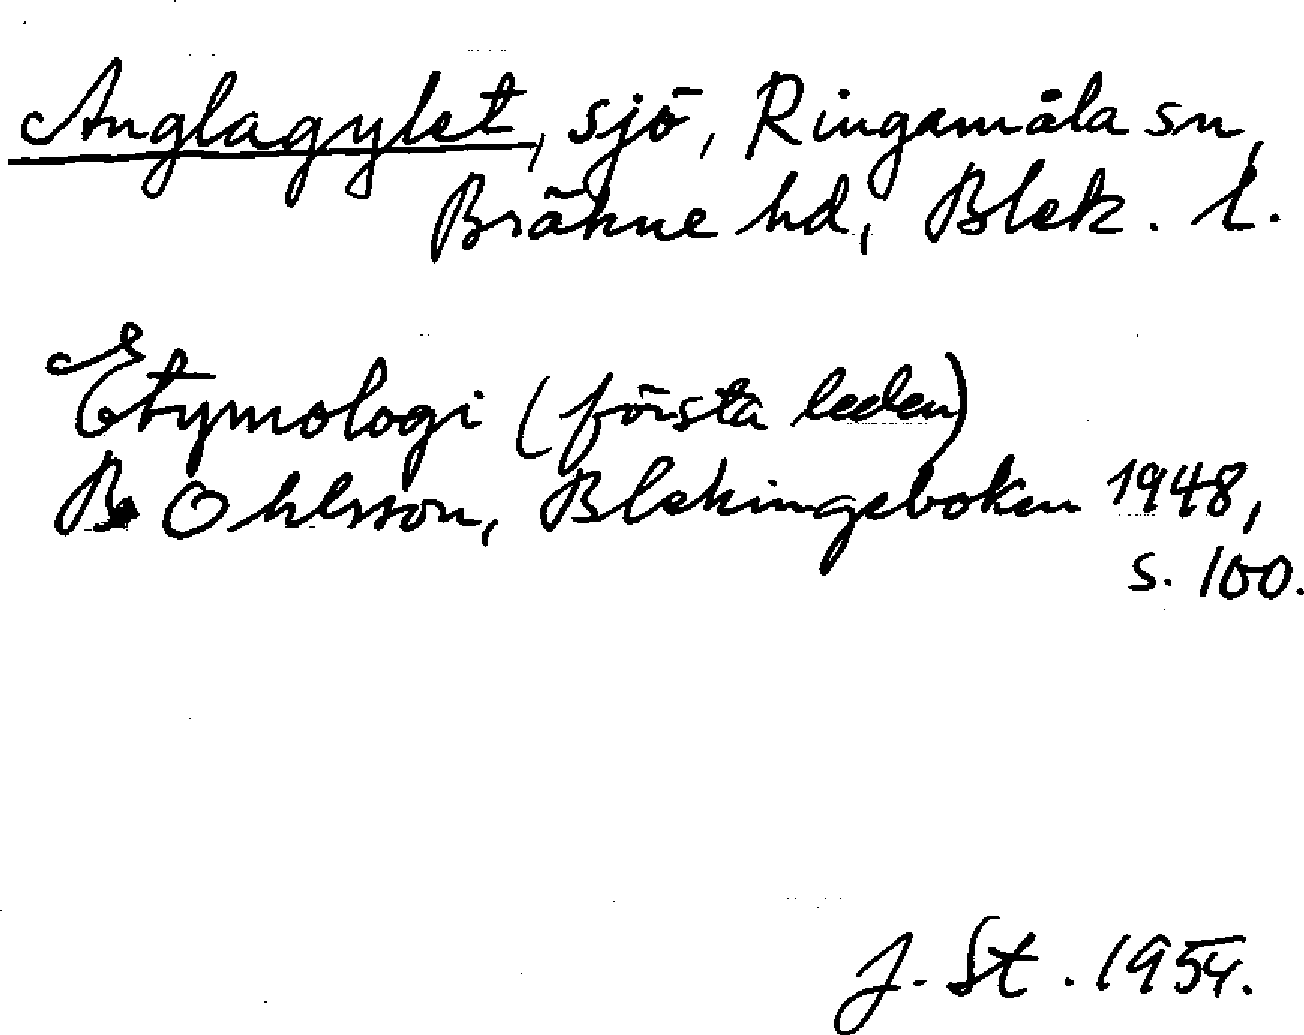 Anglagylet, sjö, Ringamåla sn,
Bräkne hd, Blek. l.
Etymologi (första leden)
B. Ohlsson, Blekingeboken 1948,
s. 100.
J. St. 1954.